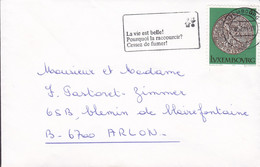 La vie est belle!
Pourquoi la raccourcir?
Cessez de fumer!
LUXEMBOURG
Monsieur et Madame
J. Pastoret-Zimmer
65B, Chemin de Clairefontaine
B-6700 ARLON.